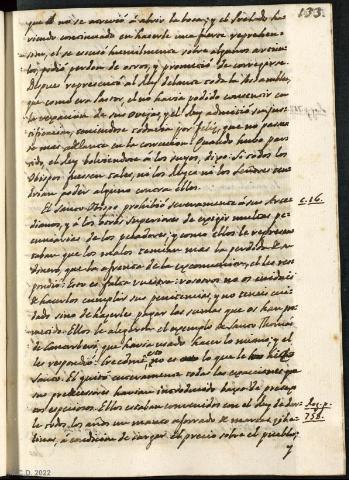 133.
que él no se atrevió á abrir la boca; y el Prelado ha-
viendo continuado en hacerle una fuerte reprehen-
sion, el se escusó humilmente sobre algunos artícu-
los, pidió perdon de otros, y prometió de corregirse.
Despues representó al Rey delante toda la Asamblea,
que como era Pastor, el no havía podido consentir en
la reparacion de sus ovejas; y el Rey admitió su jus-
tificacion, teniendose todavía por feliz, que no pasase
se mas adelante en la correccion. Quando hubo par-
tido, el Rey bolviendose á los suyos, dijo: Si todos los
Obispos fuesen tales, ni los Reyes ni los Señores ten-
drían poder alguno contra ellos.
El Santo Obispo prohibió severamente á sus Arce- c. 16.
dianos, y á los otros Superiores de exigir multas pe-
cuniarias de los pecadores; y como ellos le represen-
taban que los malos temian mas la perdida de su
dinero, que la afrenta de la excomunion, el les res-
pondió: Esto es falta vuestra: vosotros no os cuidais
de hacerles cumplir sus penitencias, y no teneis cui-
dado sino de hacerles pagar las sumas que os han pro-
metido. Ellos le alegaban el exemplo de Santo Thomas
de Cantorberi, que havía usado hacer lo mismo; y el
les respondió: Creedme, no es esto lo que le hizo
Santo. El quitó enteramente todas las exacciones que
sus predecesores havian introducido bajo de pretex-
tos especiosos. Ellos estaban convenidos con el Rey de dar- Rog. p.
le todos los años un manto aforrado de martas cibe- 758.
linas, á condicion de cargar el precio sobre el pueblo;
y
C.D. 2022